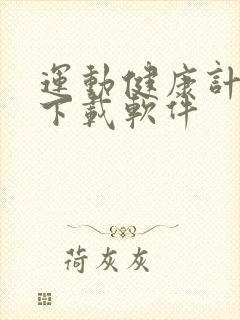 運動健康計
下載軟件
荷灰灰